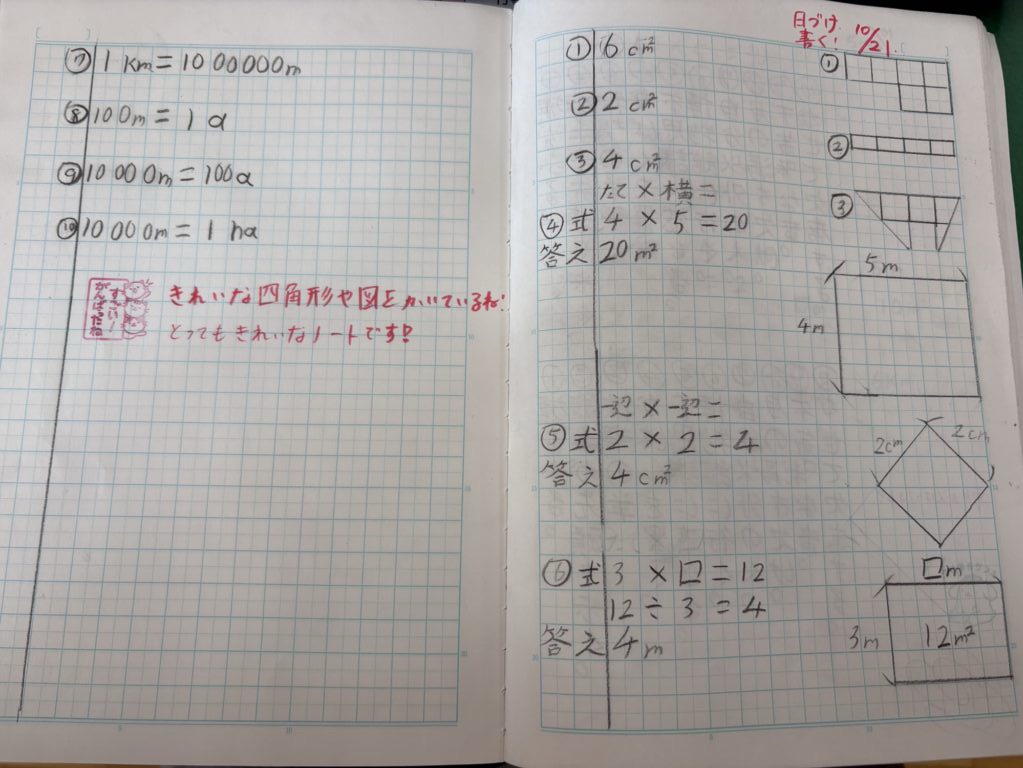 ⑦ 1 km = 1000000m
⑧ 100m = 1 a
⑨ 10000m = 100a
⑩ 10000m = 1 ha
すごい!
がんばったね
きれいな四角形や図をかいているね!
とってもきれいなノートです!
日づけ
書く! 10/21.
① 6 cm²
② 2 cm²
③ 4 cm²
たて × 横 =
④ 式 4 × 5 = 20
答え 20 m²
一辺 × 一辺 =
⑤ 式 2 × 2 = 4
答え 4 cm²
⑥ 式 3 × □ = 12
12 ÷ 3 = 4
答え 4 m
①
②
③
5m
4m
2cm 2cm
□m
3m 12m²